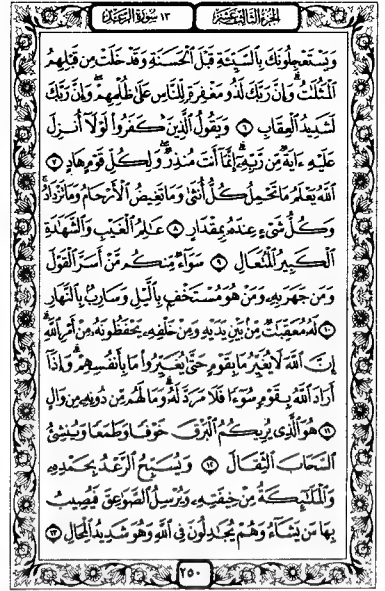 الجزء الثالث عشر
١٣ سورة الرعد
وَيَسْتَعْجِلُونَكَ بِالسَّيِّئَةِ قَبْلَ الْحَسَنَةِ وَقَدْ خَلَتْ مِن قَبْلِهِمُ
الْمَثُلَٰتُ ۗ وَإِنَّ رَبَّكَ لَذُو مَغْفِرَةٍ لِّلنَّاسِ عَلَىٰ ظُلْمِهِمْ ۖ وَإِنَّ رَبَّكَ
لَشَدِيدُ الْعِقَابِ ٦ وَيَقُولُ الَّذِينَ كَفَرُوا لَوْلَا أُنزِلَ
عَلَيْهِ ءَايَةٌ مِّن رَّبِّهِ ۗ إِنَّمَا أَنتَ مُنذِرٌ ۖ وَلِكُلِّ قَوْمٍ هَادٍ ٧
اللَّهُ يَعْلَمُ مَا تَحْمِلُ كُلُّ أُنثَىٰ وَمَا تَغِيضُ الْأَرْحَامُ وَمَا تَزْدَادُ ۖ
وَكُلُّ شَىْءٍ عِندَهُ بِمِقْدَارٍ ٨ عَالِمُ الْغَيْبِ وَالشَّهَادَةِ
الْكَبِيرُ الْمُتَعَالِ ٩ سَوَاءٌ مِّنكُم مَّنْ أَسَرَّ الْقَوْلَ
وَمَن جَهَرَ بِهِ وَمَنْ هُوَ مُسْتَخْفٍ بِالَّيْلِ وَسَارِبٌ بِالنَّهَارِ
١٠ لَهُ مُعَقِّبَاتٌ مِّن بَيْنِ يَدَيْهِ وَمِنْ خَلْفِهِ يَحْفَظُونَهُ مِنْ أَمْرِ اللَّهِ ۗ
إِنَّ اللَّهَ لَا يُغَيِّرُ مَا بِقَوْمٍ حَتَّىٰ يُغَيِّرُوا مَا بِأَنفُسِهِمْ ۗ وَإِذَا
أَرَادَ اللَّهُ بِقَوْمٍ سُوءًا فَلَا مَرَدَّ لَهُ ۚ وَمَا لَهُم مِّن دُونِهِ مِن وَالٍ
١١ هُوَ الَّذِى يُرِيكُمُ الْبَرْقَ خَوْفًا وَطَمَعًا وَيُنشِئُ
السَّحَابَ الثِّقَالَ ١٢ وَيُسَبِّحُ الرَّعْدُ بِحَمْدِهِ
وَالْمَلَٰئِكَةُ مِنْ خِيفَتِهِ وَيُرْسِلُ الصَّوَٰعِقَ فَيُصِيبُ
بِهَا مَن يَشَاءُ وَهُمْ يُجَٰدِلُونَ فِى اللَّهِ وَهُوَ شَدِيدُ الْمِحَالِ ١٣
٢٥٠